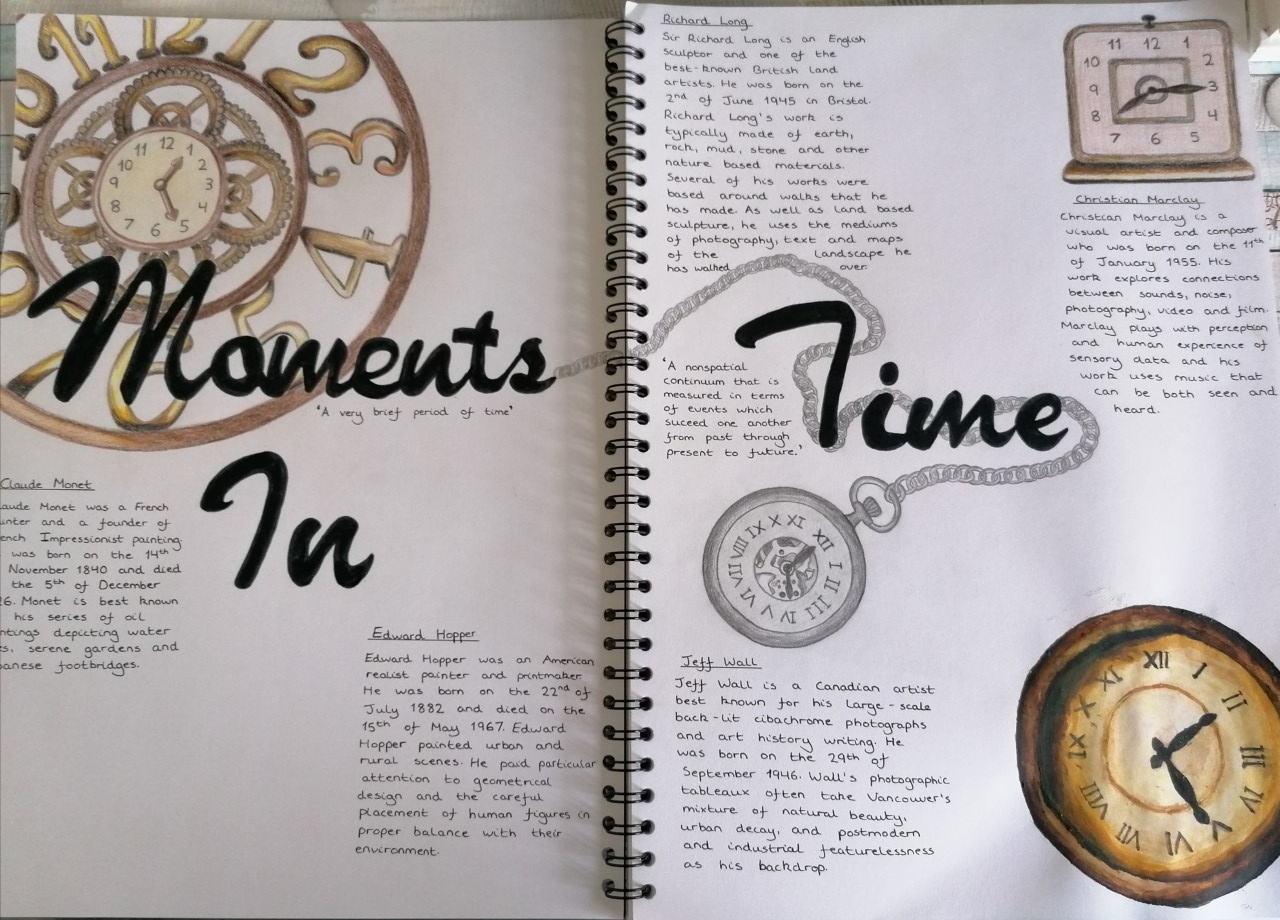 12
1
2
3
4
5
6
11 12 1
10 2
9 3
8 4
7 6 5
Moments
'A very brief period of time'
In
Claude Monet
aude Monet was a French
unter and a founder of
ench Impressionist painting.
was born on the 14th
November 1840 and died
the 5th of December
26. Monet is best known
his series of oil
ntings depicting water
s, serene gardens and
panese footbridges.
Edward Hopper
Edward Hopper was an American
realist painter and printmaker.
He was born on the 22nd of
July 1882 and died on the
15th of May 1967. Edward
Hopper painted urban and
rural scenes. He paid particular
attention to geometrical
design and the careful
placement of human figures in
proper balance with their
environment.
Richard Long
Sir Richard Long is an English
sculptor and one of the
best-known British land
artists. He was born on the
2nd of June 1945 in Bristol.
Richard Long's work is
typically made of earth,
rock, mud, stone and other
nature based materials.
Several of his works were
based around walks that he
has made. As well as land based
sculpture, he uses the mediums
of photography, text and maps
of the landscape he
has walked over.
Time
'A nonspatial
continuum that is
measured in terms
of events which
suceed one another
from past through
present to future.'
11 12 1
10 2
9 3
8 4
7 6 5
Christian Marclay
Christian Marclay is a
visual artist and composer
who was born on the 11th
of January 1955. His
work explores connections
between sounds, noise,
photography, video and film.
Marclay plays with perception
and human experience of
sensory data and his
work uses music that
can be both seen and
heard.
XII I II III IV V VI VII VIII IX X XI
Jeff Wall
Jeff Wall is a Canadian artist
best known for his large-scale
back-lit cibachrome photographs
and art history writing. He
was born on the 29th of
September 1946. Wall's photographic
tableaux often take Vancouver's
mixture of natural beauty,
urban decay, and postmodern
and industrial featurelessness
as his backdrop.
XII I II III IV V VI VII VIII IX X XI